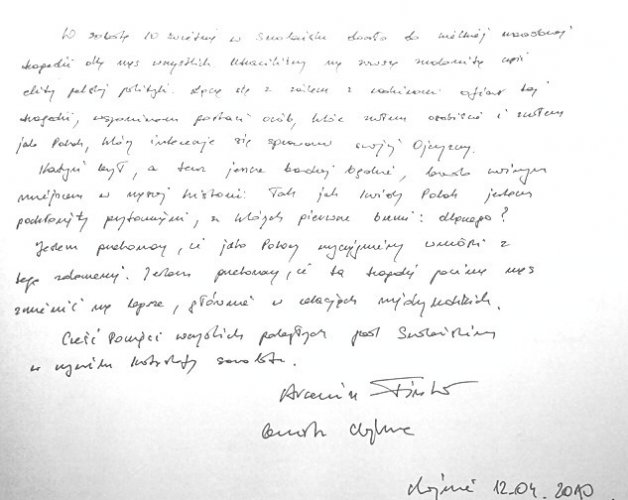 W sobotę 10 kwietnia w Smoleńsku doszło do wielkiej narodowej
tragedii dla nas wszystkich. Utraciliśmy na zawsze znakomitą część
elity polskiej polityki. Łączę się z żalem z rodzinami ofiar tej
tragedii, wspominam postaci osób, które znałem osobiście i znałem
jako Polak, który interesuje się sprawami swojej Ojczyzny.
Katyń był, a teraz jeszcze bardziej będzie, bardzo ważnym
miejscem w naszej historii. Tak jak każdy Polak jestem
podłamany pytaniami, z których pierwsze brzmi: dlaczego?
Jestem przekonany, iż jako Polacy wyciągniemy wnioski z
tego zdarzenia. Jestem przekonany, iż ta tragedia pozwoli nas
zmienić na lepsze, głównie w relacjach międzyludzkich.
Cześć Pamięci wszystkich poległych pod Smoleńskiem
w wyniku katastrofy samolotu.
12.04.2010